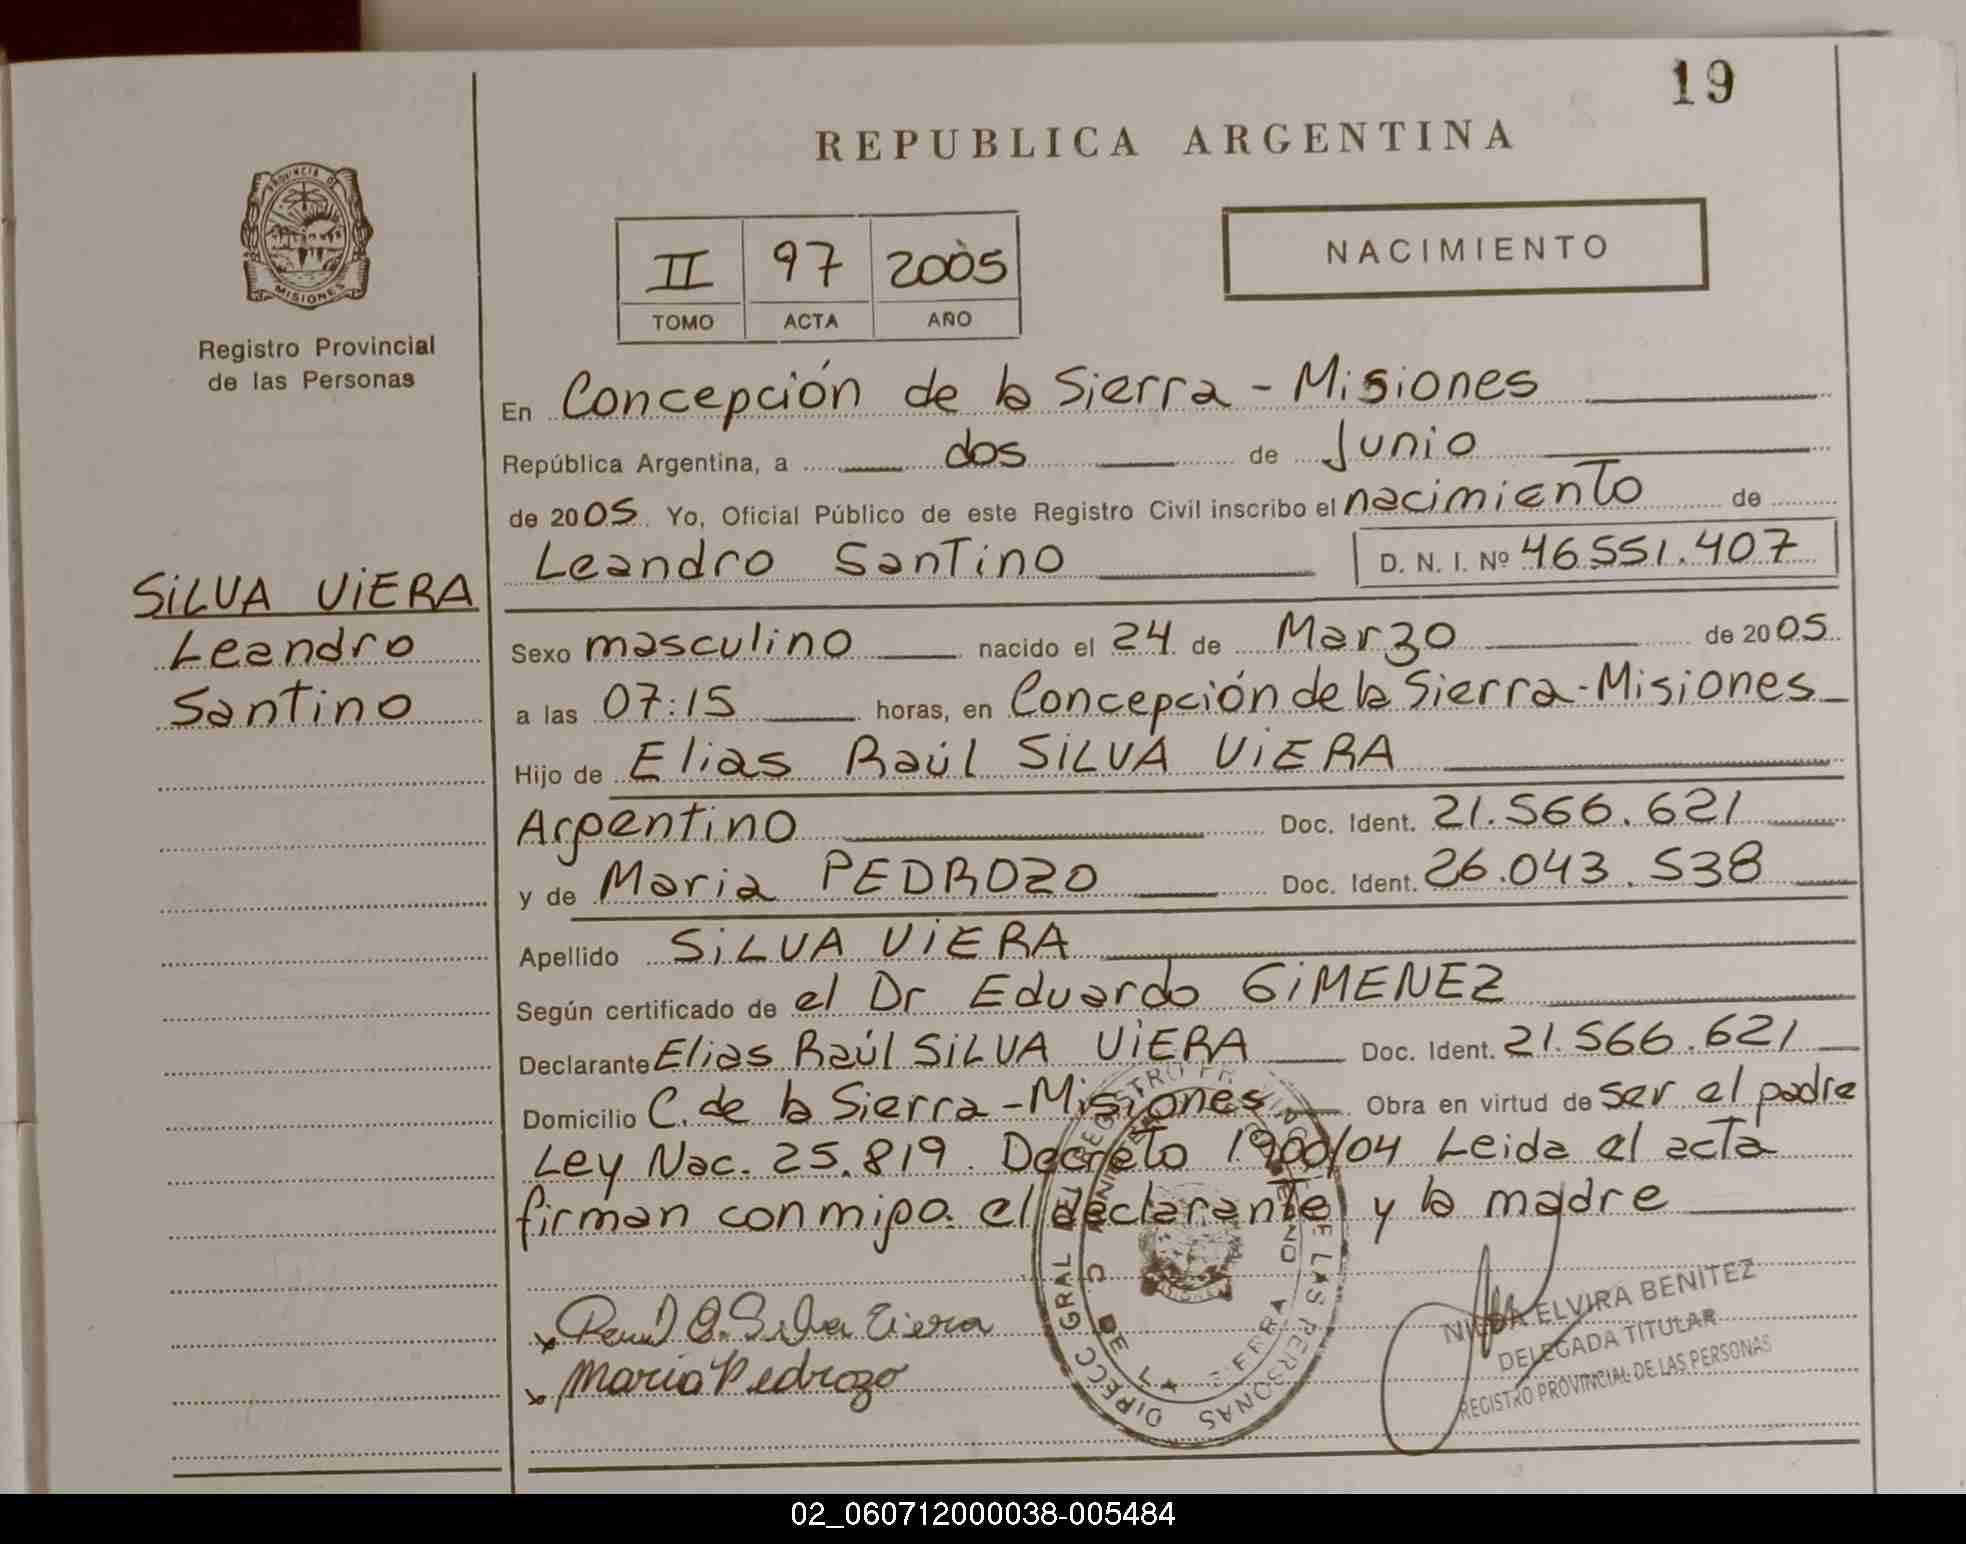 19
REPUBLICA ARGENTINA
PROVINCIA DE
MISIONES
Registro Provincial
de las Personas
II 97 2005
TOMO ACTA AÑO
NACIMIENTO
En Concepción de la Sierra - Misiones
República Argentina, a dos de Junio
de 2005 Yo, Oficial Público de este Registro Civil inscribo el nacimiento de
Leandro Santino D. N. I. Nº 46.551.407
SiLVA ViERA
Leandro
Santino
Sexo masculino nacido el 24 de Marzo de 2005
a las 07:15 horas, en Concepción de la Sierra-Misiones
Hijo de Elias Raúl SiLVA ViERA
Argentino Doc. Ident. 21.566.621
y de Maria PEDROZO Doc. Ident. 26.043.538
Apellido SiLVA ViERA
Según certificado de el Dr Eduardo GiMENEZ
Declarante Elias Raúl SiLVA ViERA Doc. Ident. 21.566.621
Domicilio C. de la Sierra - Misiones Obra en virtud de ser el padre
Ley Nac. 25.819. Decreto 1900/04 Leida el acta
firman conmigo. el declarante y la madre
x Silva Viera
x Maria Pedrozo
DIRECC GRAL DEL REGISTRO PROVINCIAL DE LAS PERSONAS
ELVIRA BENITEZ
DELEGADA TITULAR
REGISTRO PROVINCIAL DE LAS PERSONAS
02_060712000038-005484